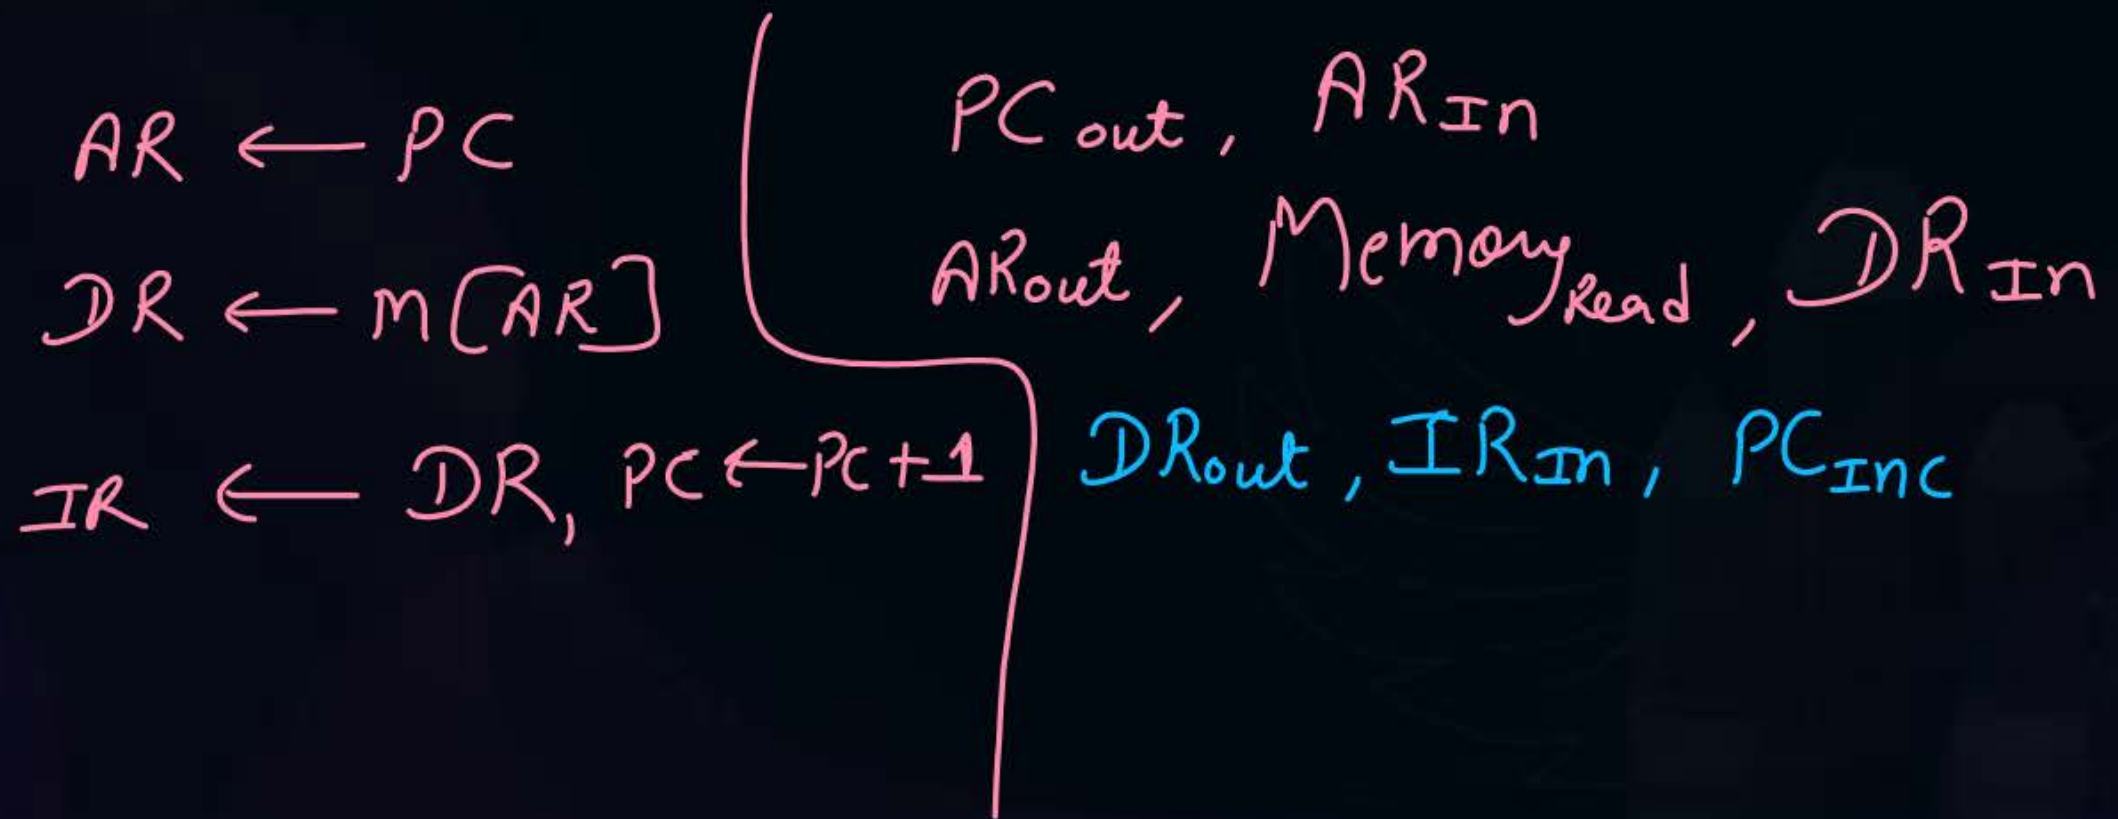 AR ← PC
DR ← M[AR]
IR ← DR, PC ← PC + 1
PC out, AR In
AR out, Memory Read, DR In
DR out, IR In, PC Inc